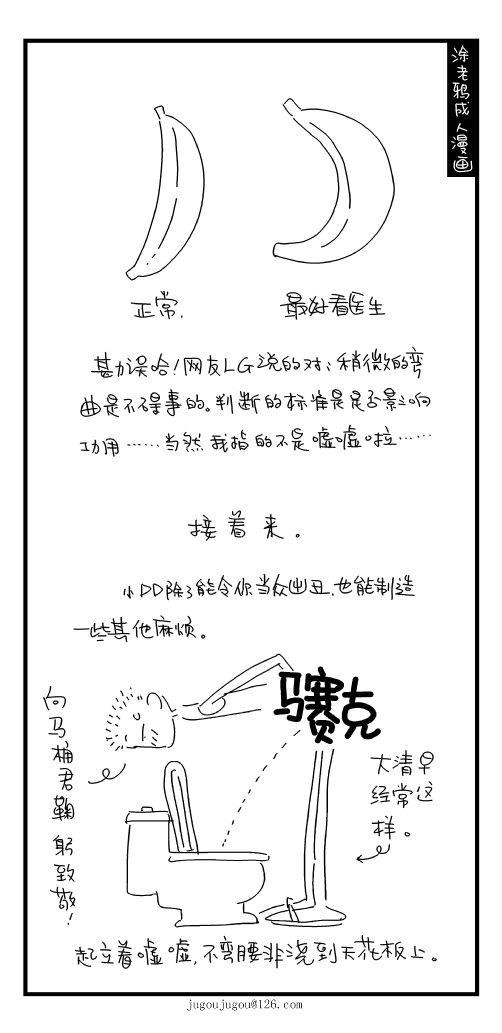 涂老鸦成人漫画
正常.
最好看医生
甚力误哈!网友LG说的对:稍微的弯
曲是不碍事的。判断的标准是是否影响
功用……当然我指的不是嘘嘘啦……
接着来。
小DD除了能令你当众出丑,也能制造
一些其他麻烦。
马赛克
向马桶君鞠躬致敬!
大清早
经常这
样。
起立着嘘嘘,不弯腰非浇到天花板上。
jugoujugou@126.com